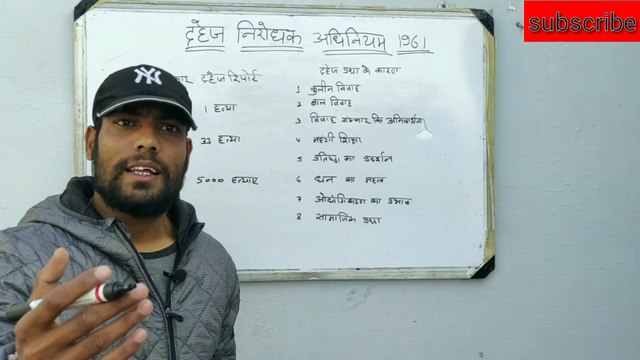 subscribe
दहेज निरोधक अधिनियम 1961
दहेज रिपोर्ट
दहेज प्रथा के कारण
1 कुलीन विवाह
1 हत्या
2 बाल विवाह
3 विवाह संस्कार कि अनिवार्यता
33 हत्या
4 महंगी शिक्षा
5 प्रतिष्ठा का प्रदर्शन
5000 हत्याए
6 धन का महत्व
7 औद्योगिकरण का प्रभाव
8 सामाजिक प्रथा
NY